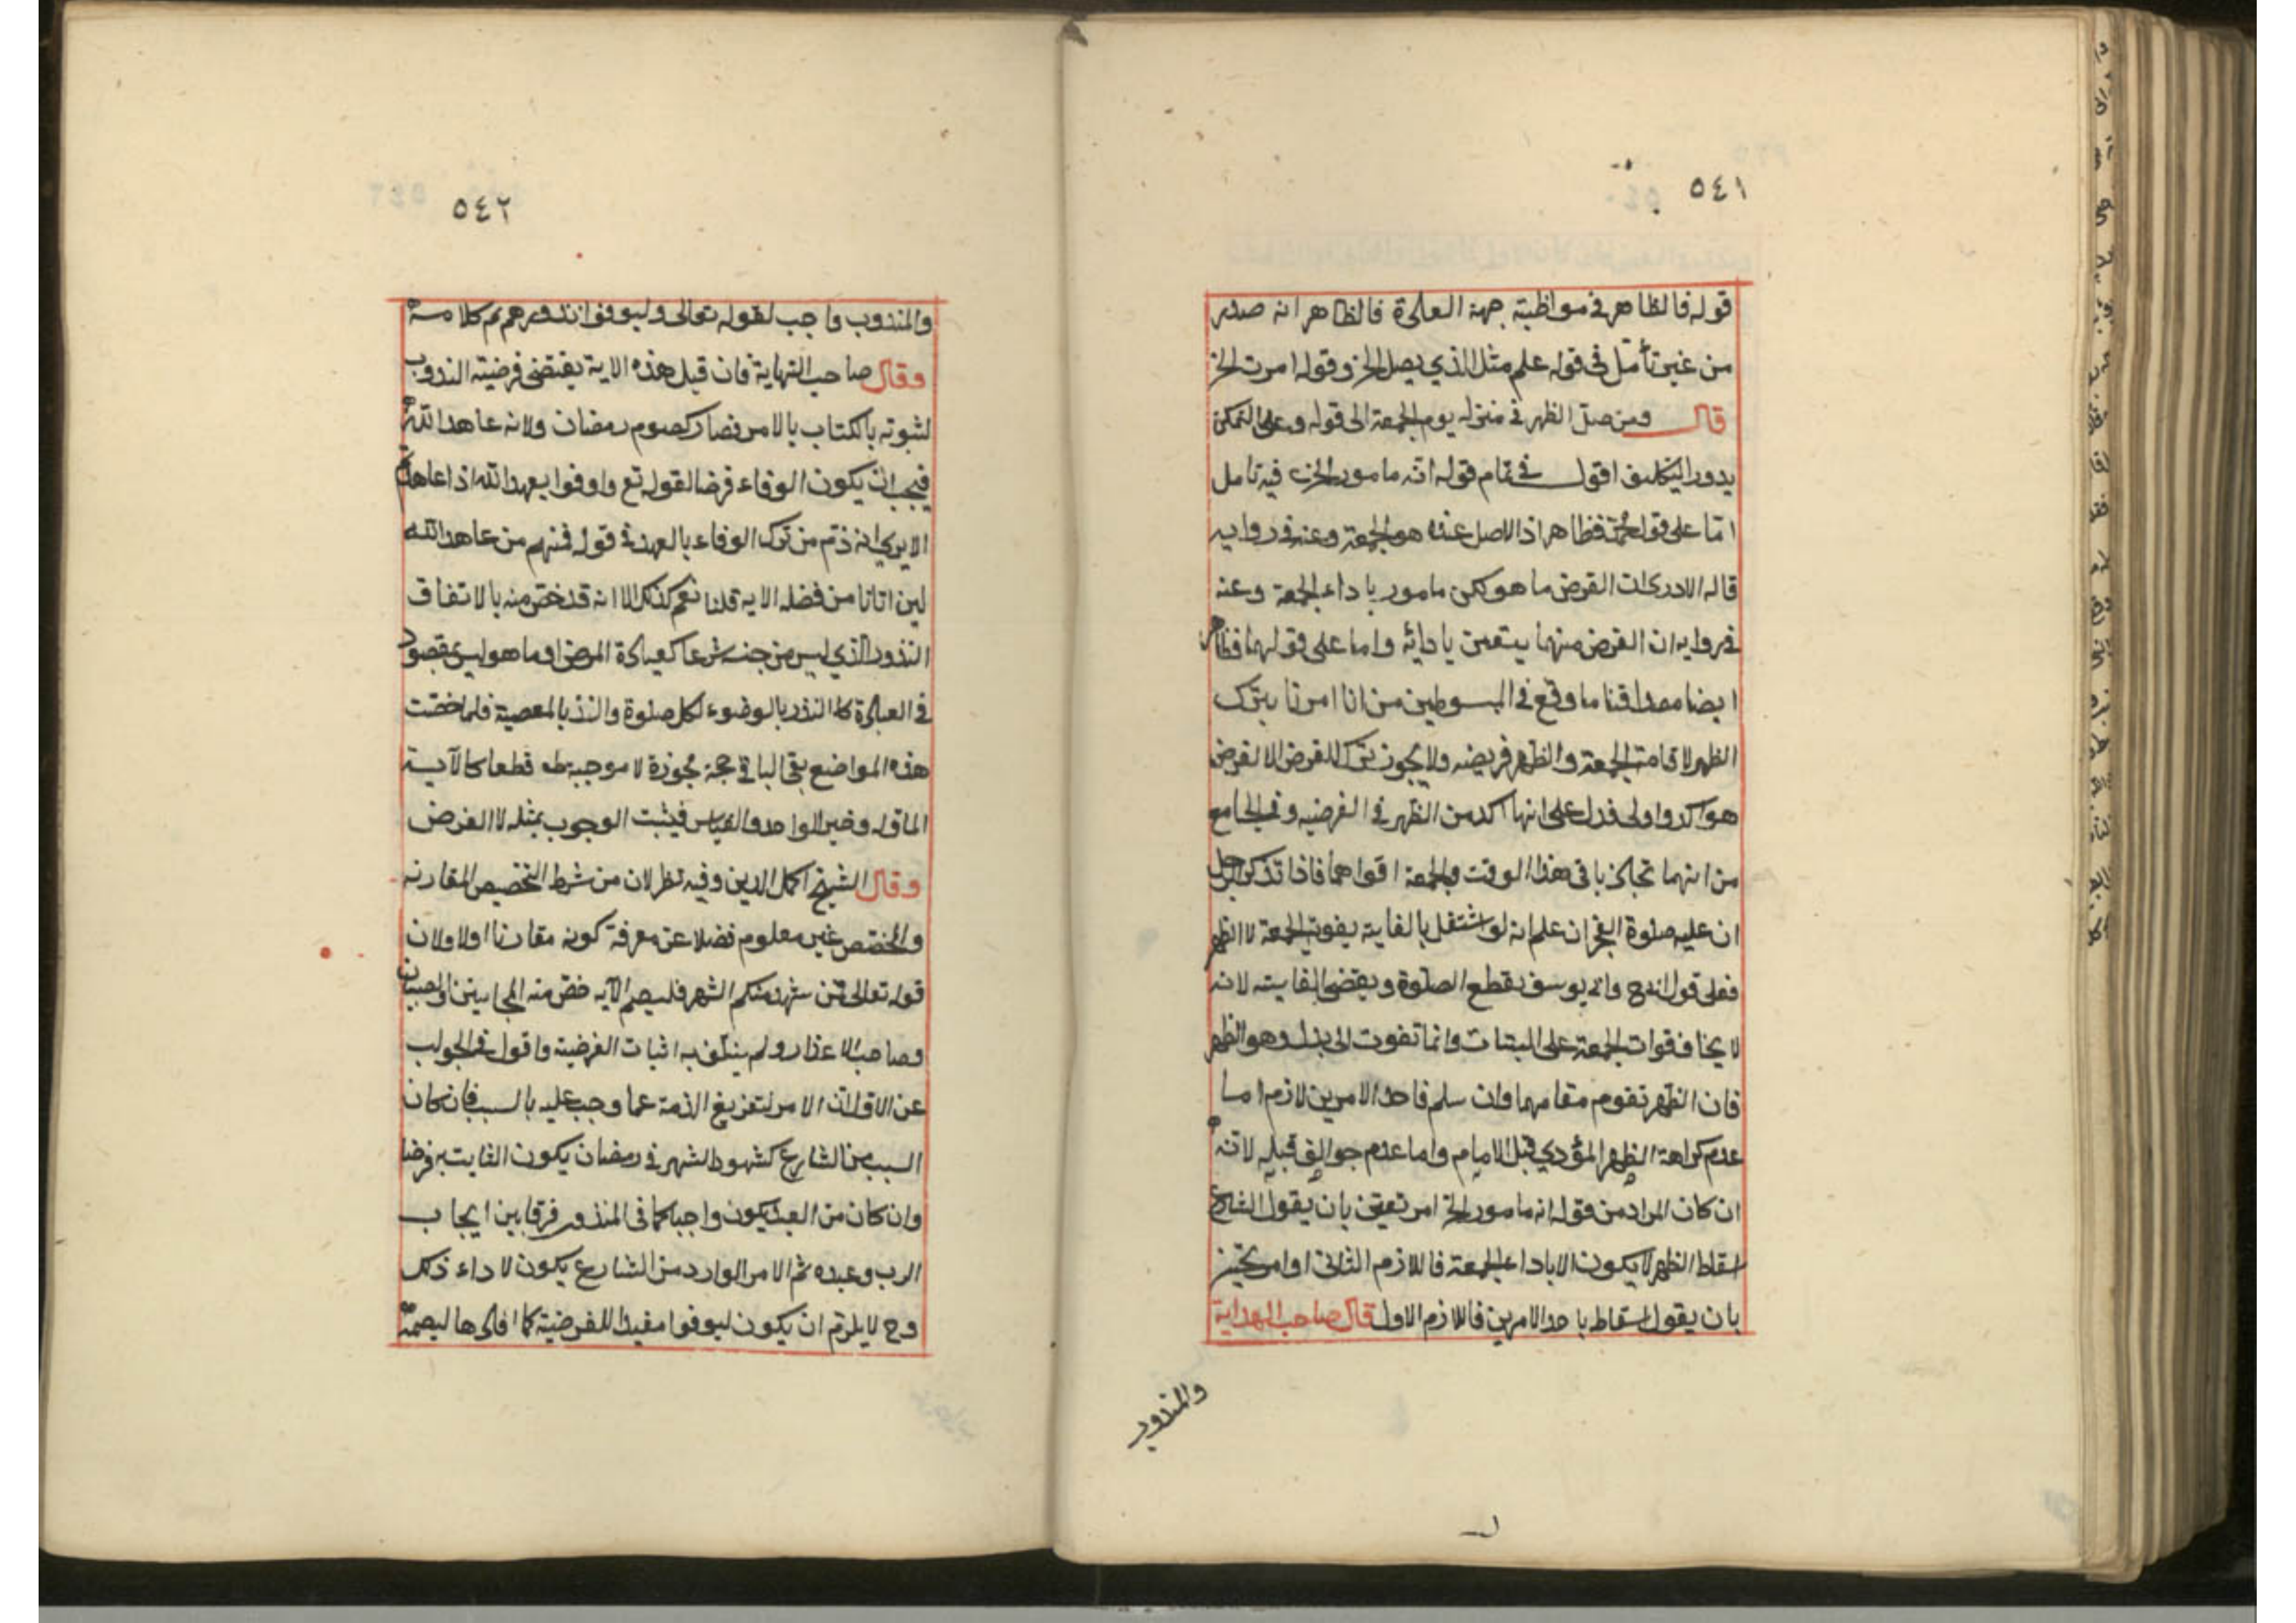 ٥٤١
قوله فالظاهر في مواظبته جهة العادة فالظاهر انه صدر
من غير تأمل في قوله علم مثل الذي يصل الخ وقوله امرت الخ
قال ومن صلى الظهر في منزله يوم الجمعة الى قوله وعلى التمكن
يدور التكليف اقول في تمام قوله انه مامور الخ فيه تامل
اما على قول محمد فظاهر اذ الاصل عنده هو الجمعة وعنه في رواية
قاله لا ادري ان الفرض ما هو لكن مامور باداء الجمعة وعنه
في رواية ان الفرض منهما يتعين بادائه واما على قولهما فظاهر
ايضا مصداقنا ما وقع في المبسوطين من انا امرنا بترك
الظهر لاقامة الجمعة والظهر فريضه ولا يجوز ترك الفرض الا لفرض
هو اكد واولى فدل على انها اكد من الظهر في الفرضيه وفي الجامع
من انهما تجاذبا في هذا الوقت والجمعة اقواهما فاذا تذكر رجل
ان عليه صلوة الفجر ان علم انه لو اشتغل بالفايته يفوت الجمعة لا الظهر
فعلى قول ابي ح وابي يوسف يقطع الصلوة ويقضي الفايته لانه
لا يخاف فوات الجمعة على البتات وانما تفوت الى بدل وهو الظهر
فان الظهر تقوم مقامهما وان سلم فاحد الامرين لازم اما
عدم كراهة الظهر المؤدي قبل الامام واما عدم جوازه قبله لانه
ان كان المراد من قوله انه مامور الخ امر تعيين بان يقول الشارع
اسقاط الظهر لا يكون الا باداء الجمعة فاللازم الثاني او امر تخيير
بان يقول اسقاط باحد الامرين فاللازم الاول قال صاحب الهداية
والمنذور
٥٤٢
والمنذوب واجب لقوله تعالى وليوفوا نذورهم تم كلامه
وقال صاحب النهاية فان قيل هذه الاية يقتضي فرضيته النذوب
لثبوته بالكتاب بالامر فصار كصوم رمضان ولانه عاهد الله
فيجب ان يكون الوفاء فرضا لقوله تع واوفوا بعهد الله اذا عاهدتم
الا يرى انه ذم من ترك الوفاء بالعهد في قوله فمنهم من عاهد الله
لين اتانا من فضله الايه قلنا نعم كذلك الا انه قد خص منه بالاتفاق
النذور الذي ليس من جنسه شرعا كعيادة المرضى او ما هو ليس بمقصود
في العبادة كالنذر بالوضوء لكل صلوة والنذر بالمعصية فلما خصت
هذه المواضع بقي الباقي حجة مجوزة لا موجبة قطعا كالآية
الماولة وخبر الواحد والقياس فيثبت الوجوب بمثله لا الفرض
وقال الشيخ اكمل الدين وفيه نظر لان من شرط التخصيص المقارنه
والمخصص غير معلوم فضلا عن معرفة كونه مقارنا اولا ولان
قوله تعالى فمن شهد منكم الشهر فليصم الآيه خص منه المجانين والصبيان
وصاحب الاعذار ولم ينتف به اثبات الفرضية واقول في الجواب
عن الاول ان الامر لتفريغ الذمة عما وجب عليه بالسبب فان كان
السبب من الشارع كشهود الشهر في رمضان يكون الثابت به فرضا
وان كان من العبد يكون واجبا كما في المنذور فرقا بين ايجاب
الرب وعبده ثم الامر الوارد من الشارع يكون لاداء ذلك
وح لا يلزم ان يكون ليوفوا مفيدا للفرضية كما افادها ليصمه